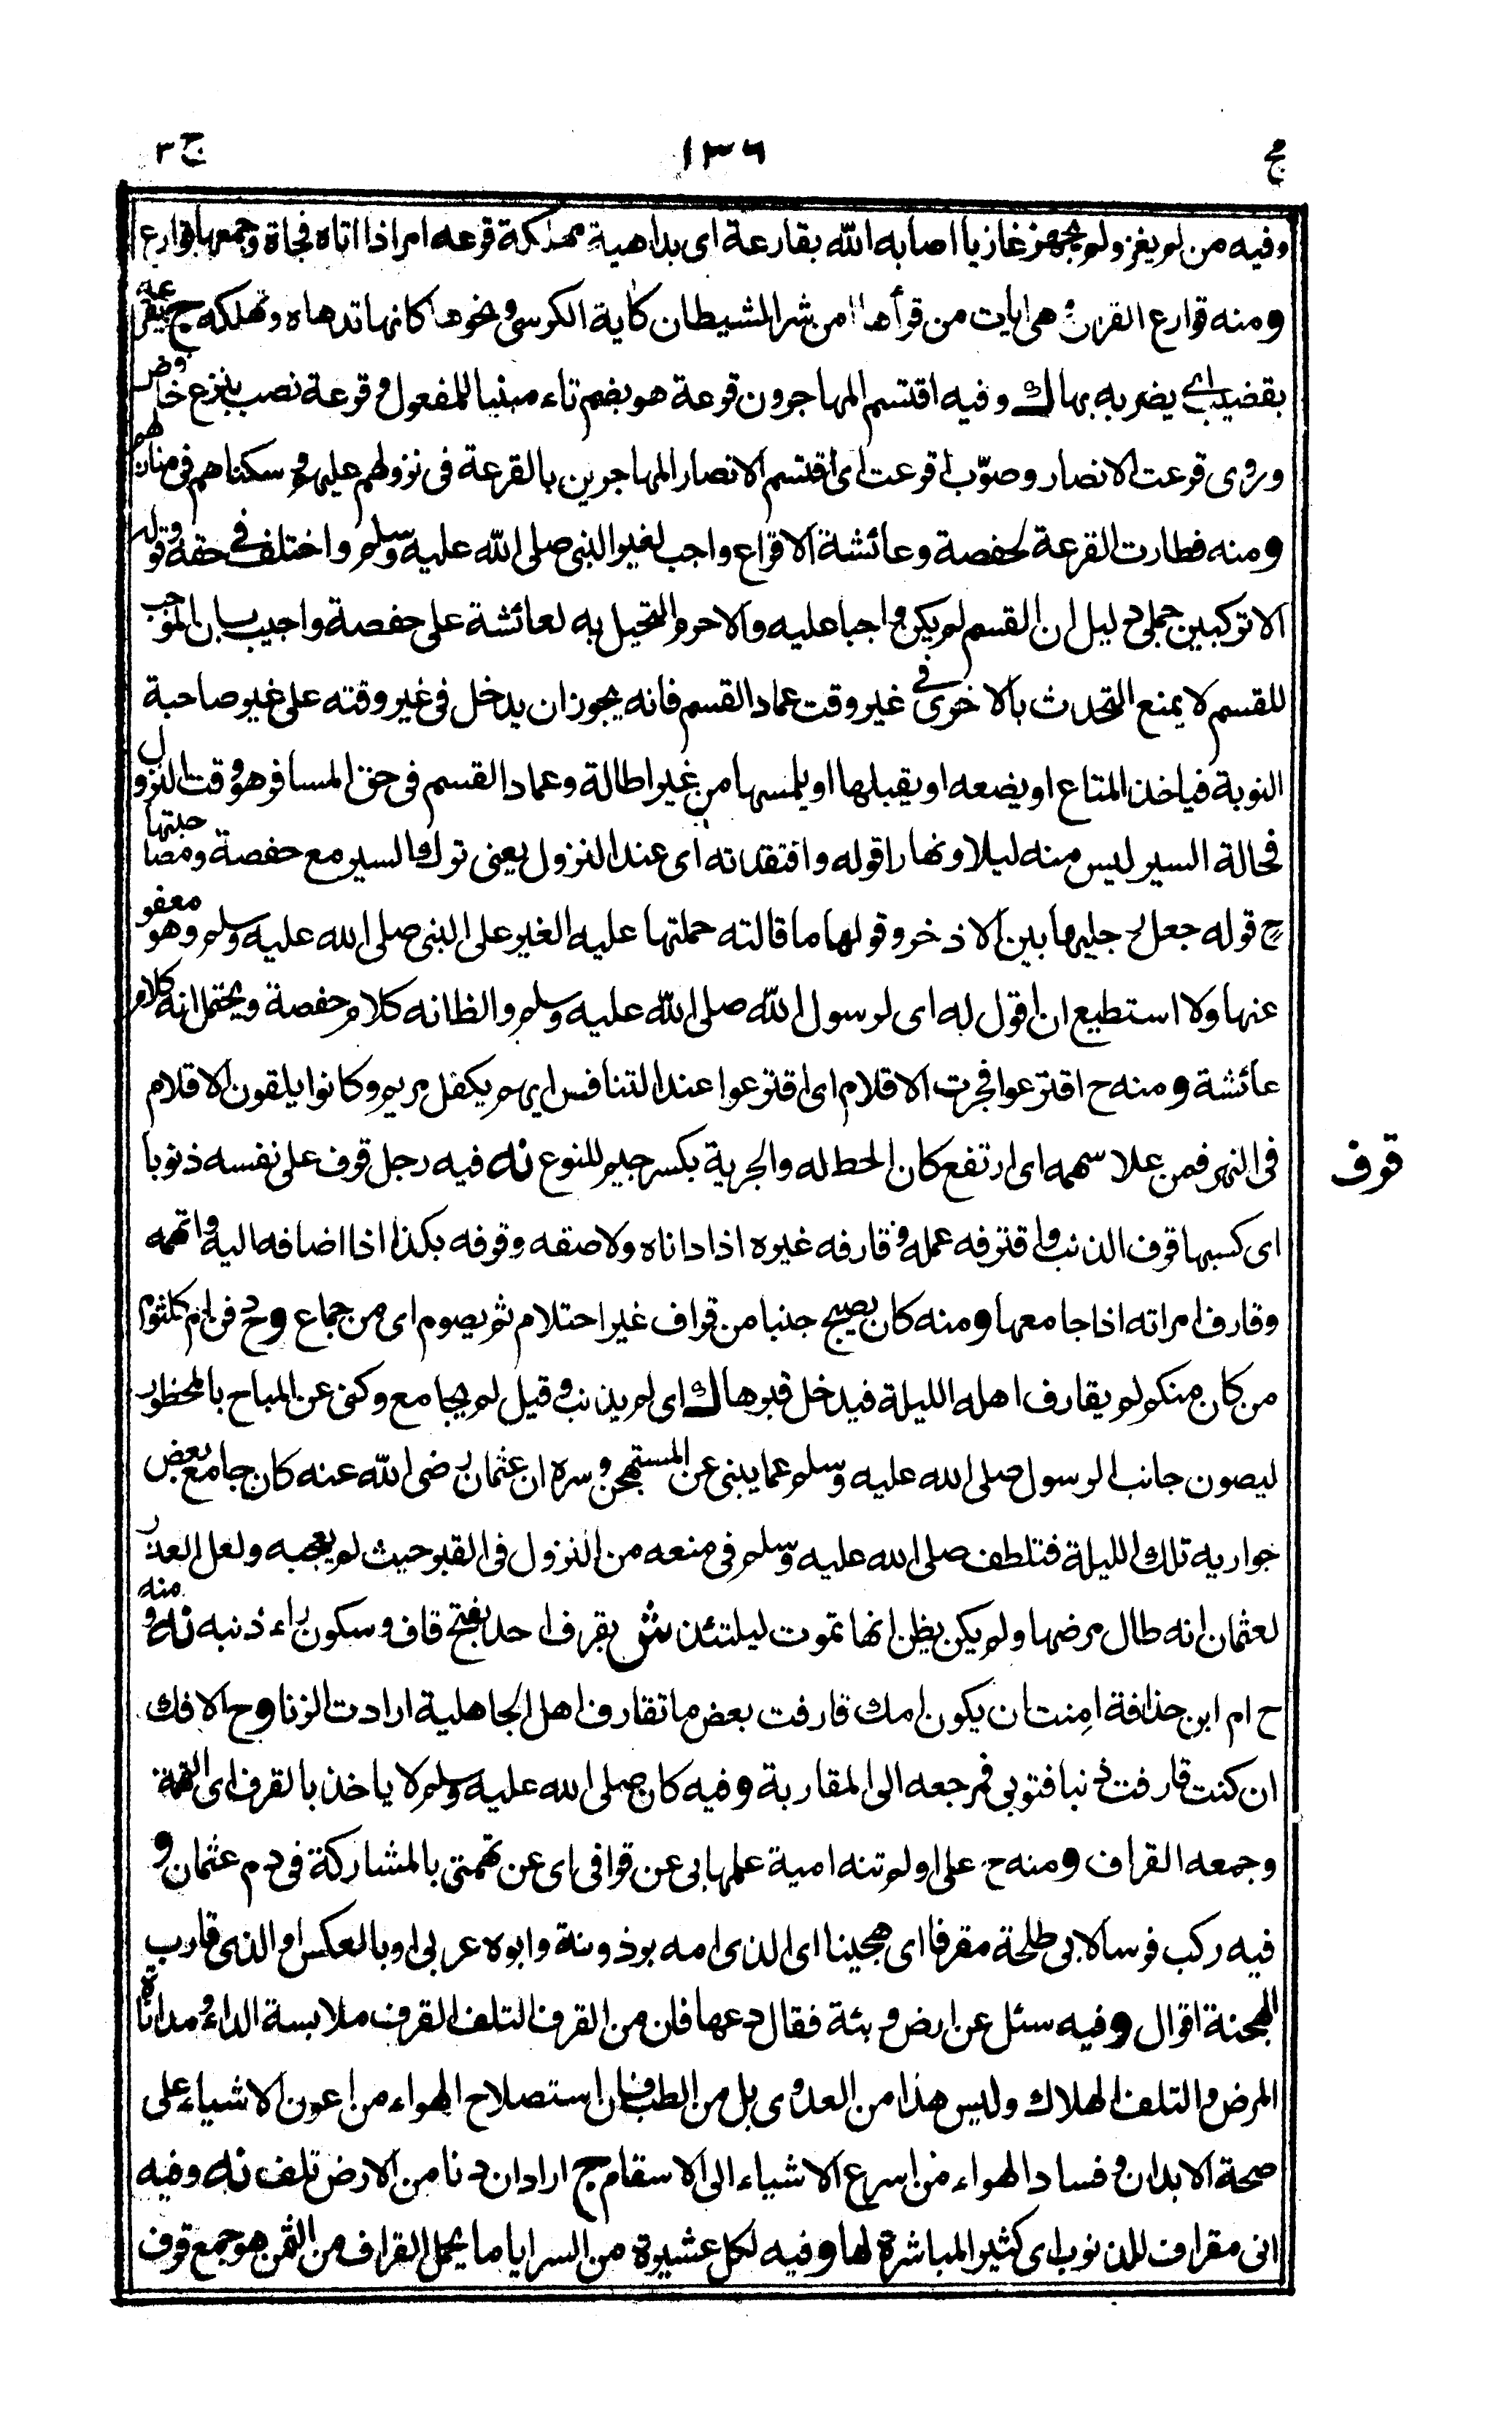 مج ١٣٦ ج ٣
وفيه من لم يغز ولم يجهز غازيا اصابه الله بقارعة اى بداهية مهلكة قرعه امر اذا اتاه فجاة وجمعها قوارع
ومنه قوارع القران هى ايات من قرأها امن شر الشيطان كاية الكرسى ونحوها كانها تدهاه وتهلكه ج يقرعه
بقضيب اى يضربه بها ك وفيه اقتسم المهاجرون قرعة هو بضم تاء مبنيا للمفعول وقرعة نصب بنزع خافض
وروى قرعت الانصار وصوّب اقرعت اى اقتسم الانصار المهاجرين بالقرعة فى نزولهم عليهم وسكناهم فى منازلهم
ومنه فطارت القرعة لحفصة وعائشة الاقراع واجب لغير النبى صلى الله عليه وسلم واختلف فى حقه وقوله
الا تركبين جملى دليل ان القسم لم يكن واجبا عليه والا حرم التحيل به لعائشة على حفصة واجيب بان الموجب
للقسم لا يمنع التحدث بالاخرى فى غير وقت عماد القسم فانه يجوز ان يدخل فى غير وقته على غير صاحبة
النوبة فياخذ المتاع او يضعه او يقبلها او يلمسها من غير اطالة وعماد القسم فى حق المسافر هو وقت النزول
فحالة السير ليس منه ليلا ونهارا قوله وافتقدته اى عند النزول يعنى ترك السير مع حفصة ومصاحبتها
ج قوله جعل رجليها بين الاذخر وقولها ما قالته حملتها عليه الغير على النبى صلى الله عليه وسلم وهو معفو
عنها ولا استطيع ان اقول له اى لرسول الله صلى الله عليه وسلم والظ انه كلام حفصة ويحتمل انه كلام
عائشة ومنه ح اقترعوا فجرت الاقلام اى اقترعوا عند التنافس ايهم يكفل مريم وكانوا يلقون الاقلام
فى النهر فمن علا سهمه اى ارتفع كان الحظ له والجرية بكسر جيم للنوع نه فيه رجل قرف على نفسه ذنوبا
قرف
اى كسبها قرف الذنب واقترفه عمله وقارفه غيره اذا داناه ولاصقه وقرفه بكذا اذا اضافه اليه واتهمه
وقارف امراته اذا جامعها ومنه كان يصبح جنبا من قراف غير احتلام ثم يصوم اى من جماع وح دفن ام كلثوم
من كان منكم لم يقارف اهله الليلة فيدخل قبرها ك اى لم يذنب وقيل لم يجامع وكنى عن المباح بالمحظور
ليصون جانب الرسول صلى الله عليه وسلم عما ينبى عن المستهجن وسره ان عثمان رضى الله عنه كان جامع بعض
جواريه تلك الليلة فتلطف صلى الله عليه وسلم فى منعه من النزول فى القبر حيث لم يعجبه ولعل العذر
لعثمان انه طال مرضها ولم يكن يظن انها تموت ليلتئذ ش بقرف احد بفتح قاف وسكون راء ذنبه نه ومنه
ح ام ابن حذافة امنت ان يكون امك قارفت بعض ما تقارف اهل الجاهلية ارادت الزنا وح الافك
ان كنت قارفت ذنبا فتوبى فمرجعه الى المقاربة وفيه كان صلى الله عليه وسلم لا ياخذ بالقرف اى التهمة
وجمعه القراف ومنه ح على اولم تنه امية علمها بى عن قرافى اى عن تهمتى بالمشاركة فى دم عثمان و
فيه ركب فرسا لابى طلحة مقرفا اى هجينا اى الذى امه برذونة وابوه عربى او بالعكس او الذى قارب
الهجنة اقوال وفيه سئل عن ارض وبئة فقال دعها فان من القرف التلف القرف ملابسة الداء ومداناة
المرض والتلف الهلاك وليس هذا من العدوى بل من الطب فان استصلاح الهواء من اعون الاشياء على
صحة الابدان وفساد الهواء من اسرع الاشياء الى الاسقام ج اراد ان دنا من الارض تلف نه وفيه
انى مقراف للذنوب اى كثير المباشرة لها وفيه لكل عشيرة من السرايا ما يحمل القراف من التمر هو جمع قرف